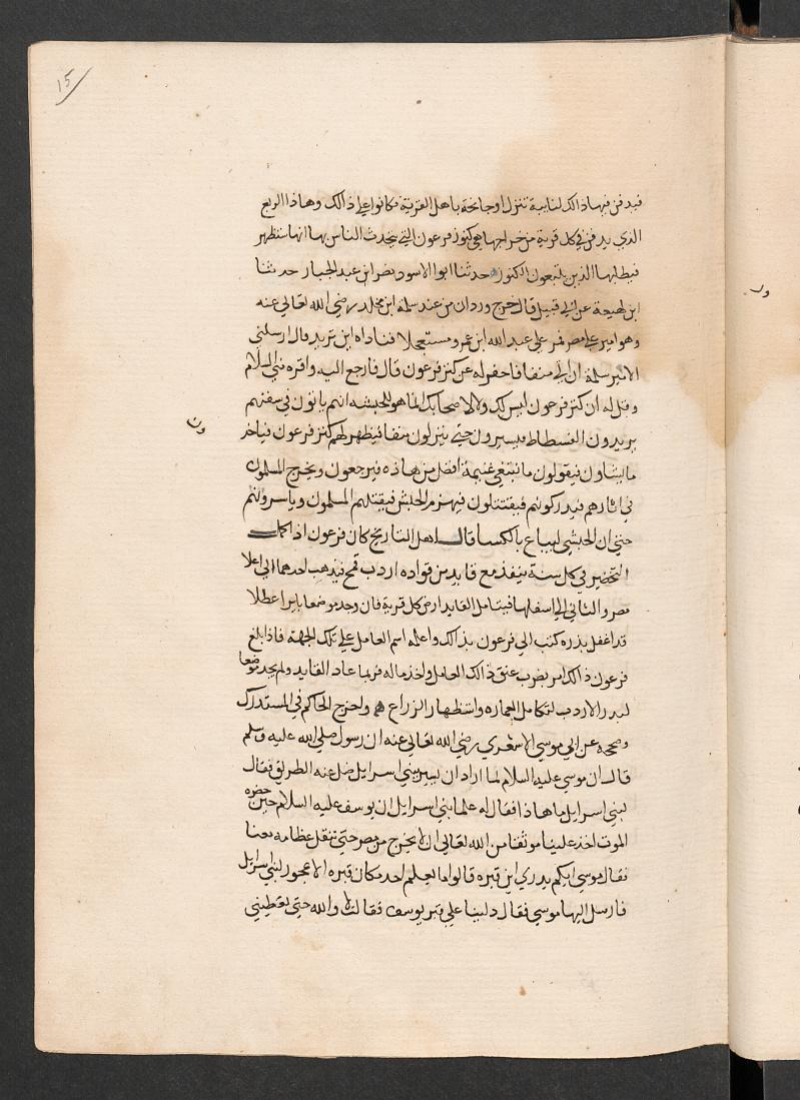 15
فيدفن فيها ذالك لنايبة تنزل او جايحة باهل القرية فكانوا علي ذالك وهاذا الربع
الذي يدفن في كل قرية من خراجها هي كنوز فرعون التي يتحدث الناس بها انها ستظهر
فيطلبها الذين يتبعون الكنوز حدثنا ابو الاسود نضر ابن عبد الجبار حدثنا
ابن لهيعة عن ابي قبيل قال خرج وردان من عند سلمة ابن مخلد رضي الله تعالي عنه
وهو امير علي مصر فمر علي عبد الله ابن عمرو مستعجلا فناداه اين تريد قال ارسلني
الامير سلمة ان اتي منفا فاحفر له عن كنز فرعون قال فارجع اليه واقره مني السلام
وقل له ان كنز فرعون ليس لك ولا لاصحابك انما هو للحبشه انهم ياتون في سفنهم
يريدون الفسطاط فيسيرون حتي ينزلون منفا فيظهر لهم كنز فرعون فياخذ
ما يشاون فيقولون ما نبتغي غنيمة افضل من هاذه فيرجعون ويخرج المسلمون
في اثارهم فيدركونهم فيقتتلون فيهزم الحبش فيقتلهم المسلمون وياسرونهم
حتي ان الحبشي ليباع بالكسا قال اهل التاريخ كان فرعون اذا اكمل
التخضير في كل سنة ينفذ مع قايد من قواده اردب قمح فيذهب احدهما الي اعلا
مصر والثاني الي اسفلها فيتامل القايد ارض كل قرية فان وجد موضعا بايرا عطلا
قد اغفل بذره كتب الي فرعون بذالك واعلمه اسم العامل علي تلك الجهة فاذا بلغ
فرعون ذالك امر بضرب عنق ذالك العامل واخذ ماله فربما عاد القايد ولم يجد موضعا
لبدر الاردب لتكامل العماره واستظهار الزراع هم واخرج الحاكم في المستدرك
وصححه عن ابي موسي الاشعري رضي الله تعالي عنه ان رسول صلي الله عليه وسلم
قال ان موسي عليه السلام لما اراد ان يسير ببني اسرايل ضل عنه الطريق فقال
لبني اسرايل ما هاذا فقال له علما بني اسرايل ان يوسف عليه السلام حين حضره
الموت اخذ علينا موثقا من الله تعالي ان لا يخرج من مصر حتي تنقل عظامه معنا
فقال موسي ايكم يدري اين قبره قالوا ما يعلم احد مكان قبره الا عجوز لبني اسرايل
فارسل اليها موسي فقال دلينا علي قبر يوسف فقالت لا والله حتي تعطيني